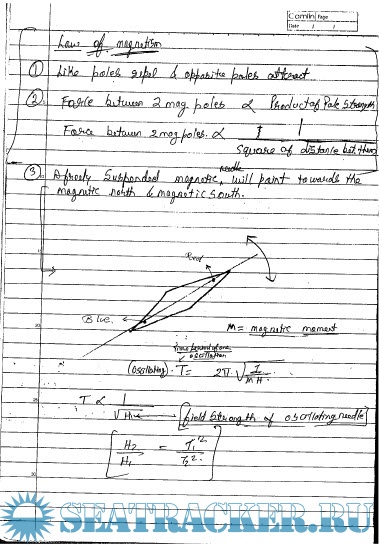 Camlin Page
Date / /
Laws of magnetism
① Like poles repel & opposite poles attract
② Force between 2 mag poles ∝ Product of Pole Strength
Force between 2 mag poles. ∝ 1
Square of distance bet them
③ A freely Suspended magnetic needle, will point towards the
magnetic north & magnetic south.
Red
Blue
M = magnetic moment
time period of one
oscillation
(oscillating) T = 2π √ I / MH
T ∝ 1 / √H ← field strength of oscillating needle
H2 / H1 = T1² / T2²
SEATRACKER.RU